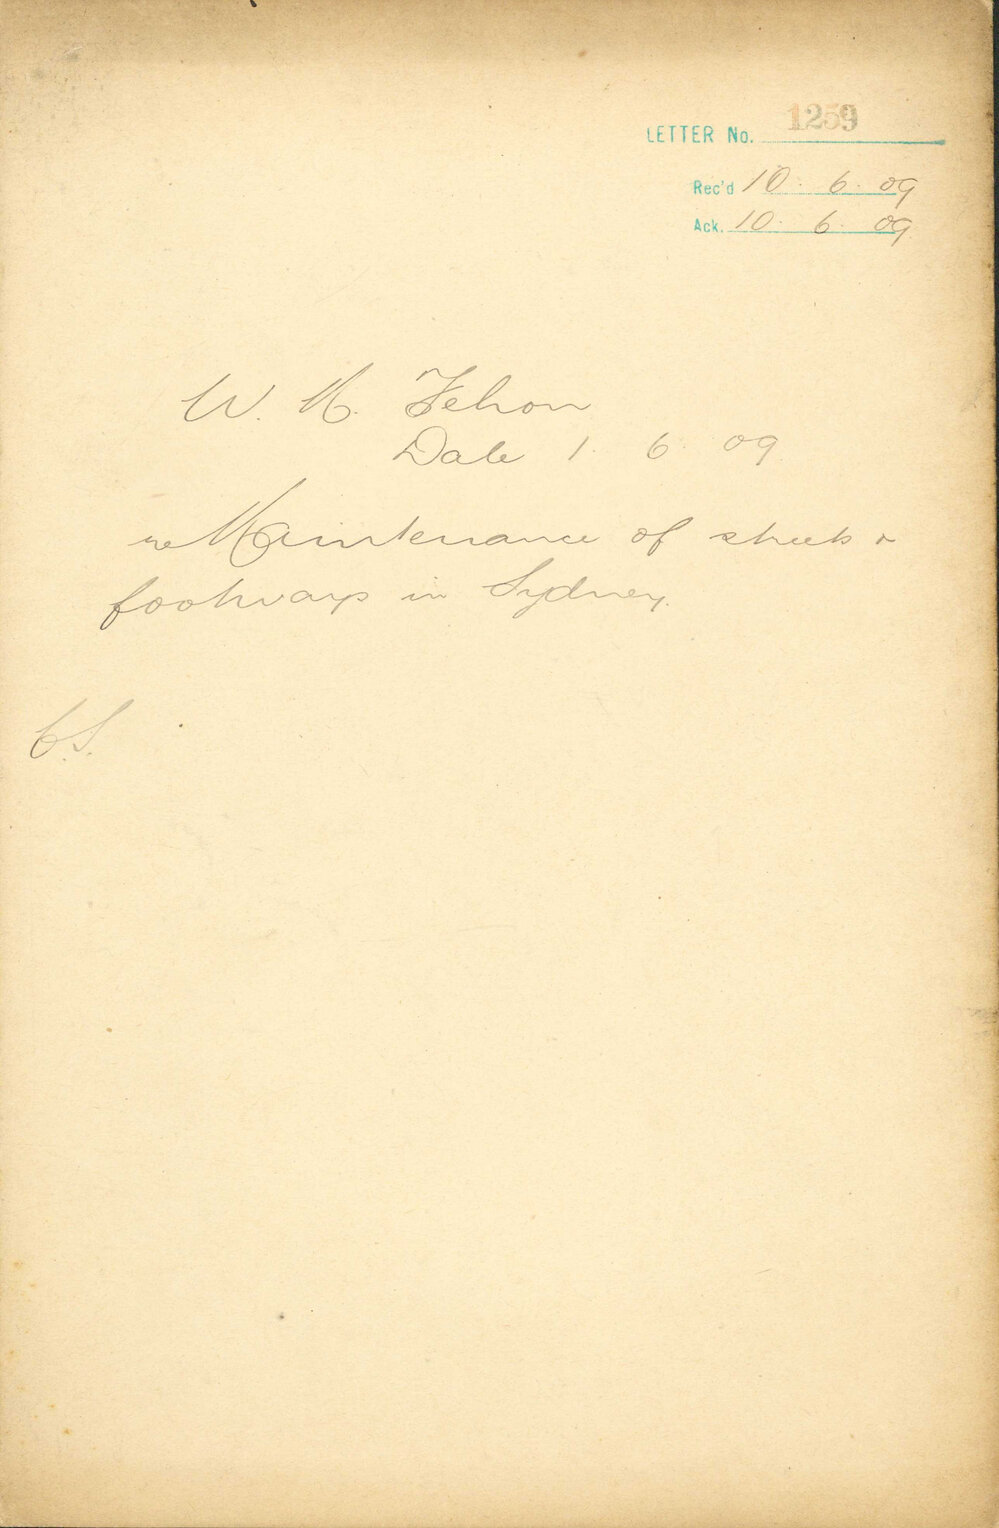 LETTER No. 1259
Rec'd 10. 6. 09
Ack. 10. 6. 09
W. M. Fehon
Date 1. 6. 09
re Maintenance of streets &
footways in Sydney.
C.S.